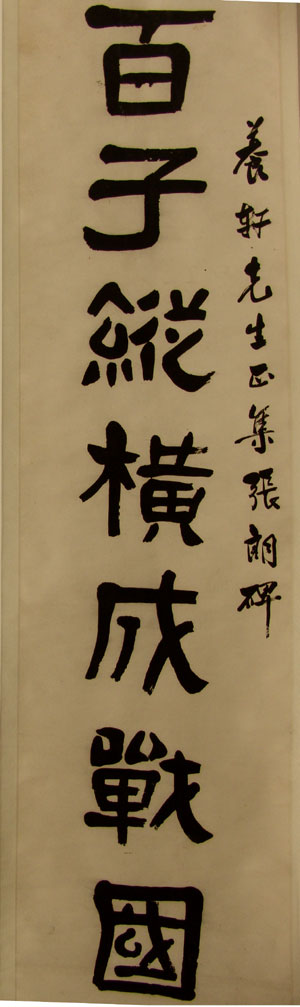 養軒先生正集張朗碑
百子縱橫成戰國